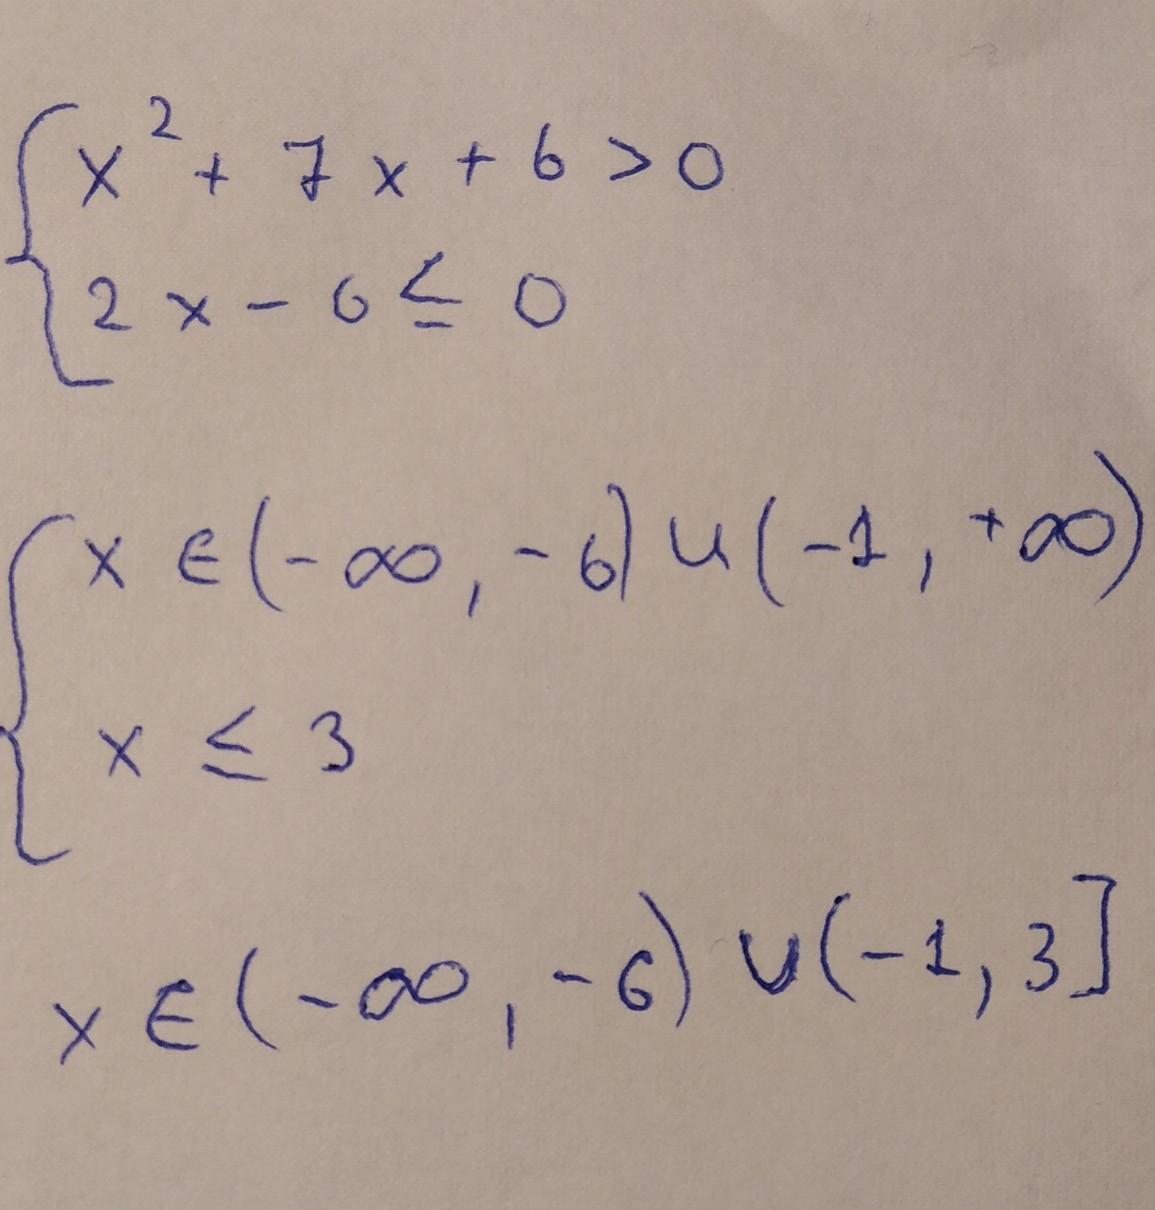 x² + 7x + 6 > 0
2x - 6 ≤ 0
x ∈ (-∞, -6) ∪ (-1, +∞)
x ≤ 3
x ∈ (-∞, -6) ∪ (-1, 3]